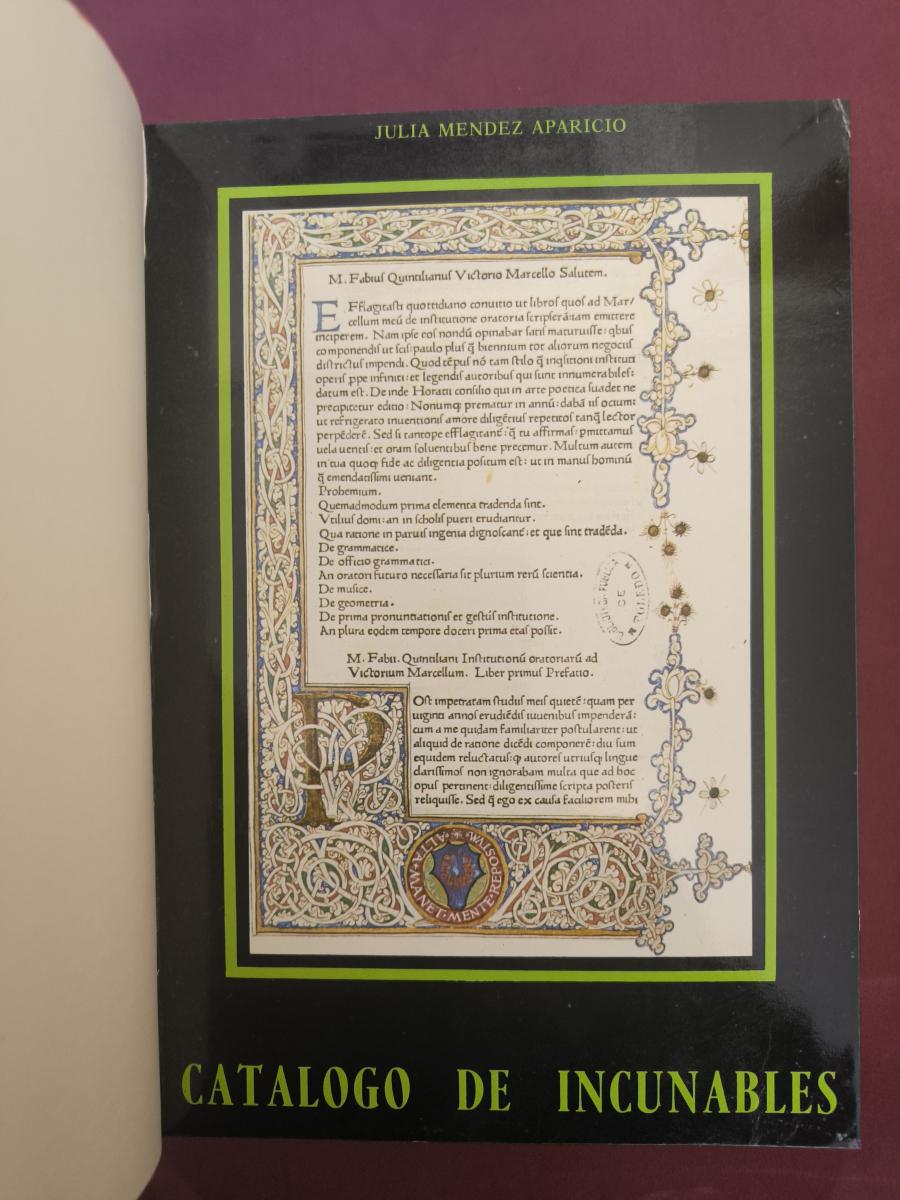 JULIA MENDEZ APARICIO
M. Fabius Quintilianus Victorio Marcello Salutem.
EFflagitasti quottidiano conuitio ut libros quos ad Mar/
cellum meū de institutione oratoria scripserā:iam emittere
inciperem. Nam ipse eos nondū opinabar satis maturuisse: qbus
componendis ut scis:paulo plus q̄ biennium tot aliorum negociis
districtus impendi. Quod tēpus nō tam stilo q̄ inqsitioni instituti
operis ppe infiniti: et legendis autoribus qui sunt innumerabiles:
datum est. De inde Horatii consilio qui in arte poetica suadet ne
precipitetur editio: Nonumq; prematur in annū: dabā iis ocium:
ut refrigerato inuentionis amore diligētius repetitos tanq̄ lector
perpēderē. Sed si tantope efflagitant: q̄ tu affirmas: pmittamus
uela uentis: et oram soluentibus bene precemur. Multum autem
in tua quoq; fide ac diligentia positum est: ut in manus hominū
q̄ emendatissimi ueniant.
Prohemium.
Quemadmodum prima elementa tradenda sint.
Vtilius domi: an in scholis pueri erudiantur.
Qua ratione in paruis ingenia dignoscant: et que sint tradēda.
De grammatice.
De officio grammatici.
An oratori futuro necessaria sit plurium rerū scientia.
De musice.
De geometria.
De prima pronuntiationis et gestus institutione.
An plura eodem tempore doceri prima etas possit.
DE
TOLEDO
M. Fabii. Quintiliani Institutionū oratoriarū ad
Victorium Marcellum. Liber primus Prefatio.
POst impetratam studiis meis quietē: quam per
uiginti annos erudiēdis iuuenibus impenderā:
cum a me quidam familiariter postularent: ut
aliquid de ratione dicēdi componerē: diu sum
equidem reluctatus: q autores utriusq; lingue
clarissimos non ignorabam multa que ad hoc
opus pertinent: diligentissime scripta posteris
reliquisse. Sed q̄ ego ex causa faciliorem mihi
ALTA·MANET·MENTE·REPOSTVM
CATALOGO DE INCUNABLES